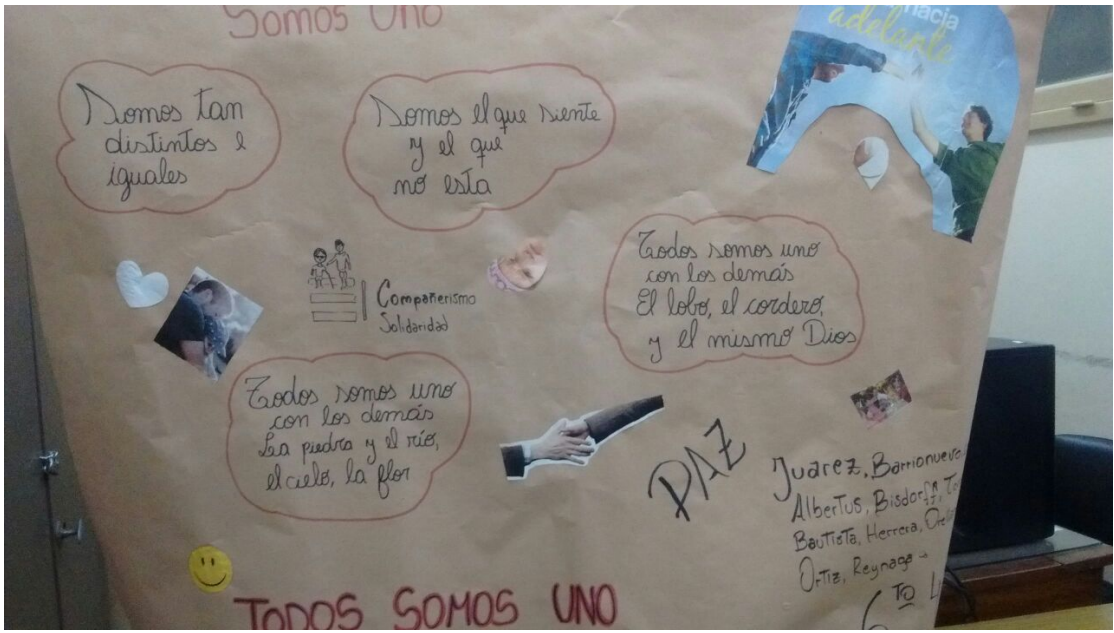 Somos Uno
hacia
adelante
Somos tan
distintos e
iguales
Somos el que siente
y el que
no esta
Todos somos uno
con los demás
El lobo, el cordero,
y el mismo Dios
Compañerismo
Solidaridad
Todos somos uno
con los demás
La piedra y el río,
el cielo, la flor
PAZ
Juarez, Barrionuevo
Albertus, Bisdorff,
Bautista, Herrera,
Ortiz, Reynaga
6 TO
TODOS SOMOS UNO